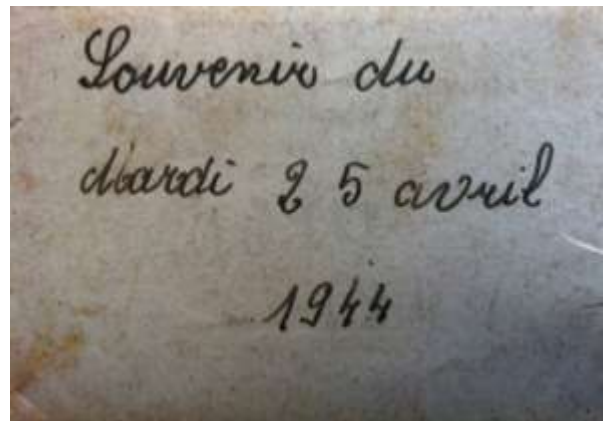 Souvenir du
Mardi 25 avril
1944